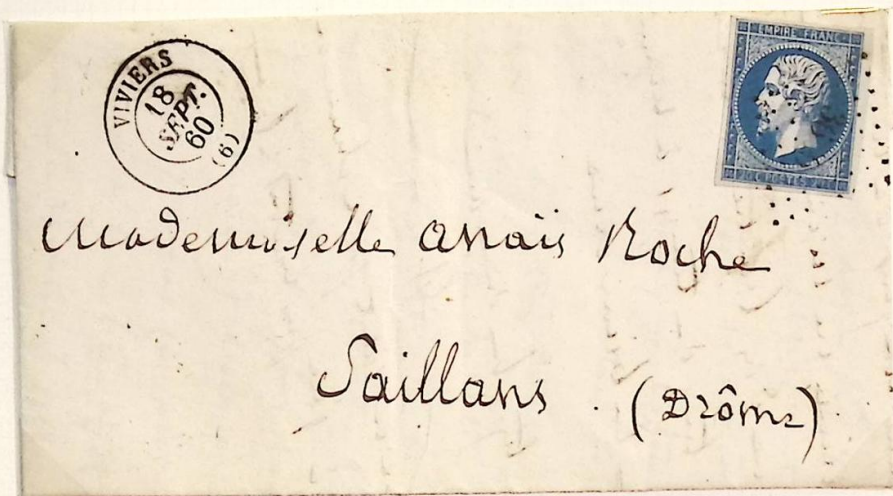 VIVIERS
18
SEPT.
60
(6)
EMPIRE FRANC
20 C POSTES 20 C
Mademoiselle Anaïs Roche
Saillans (Drôme)